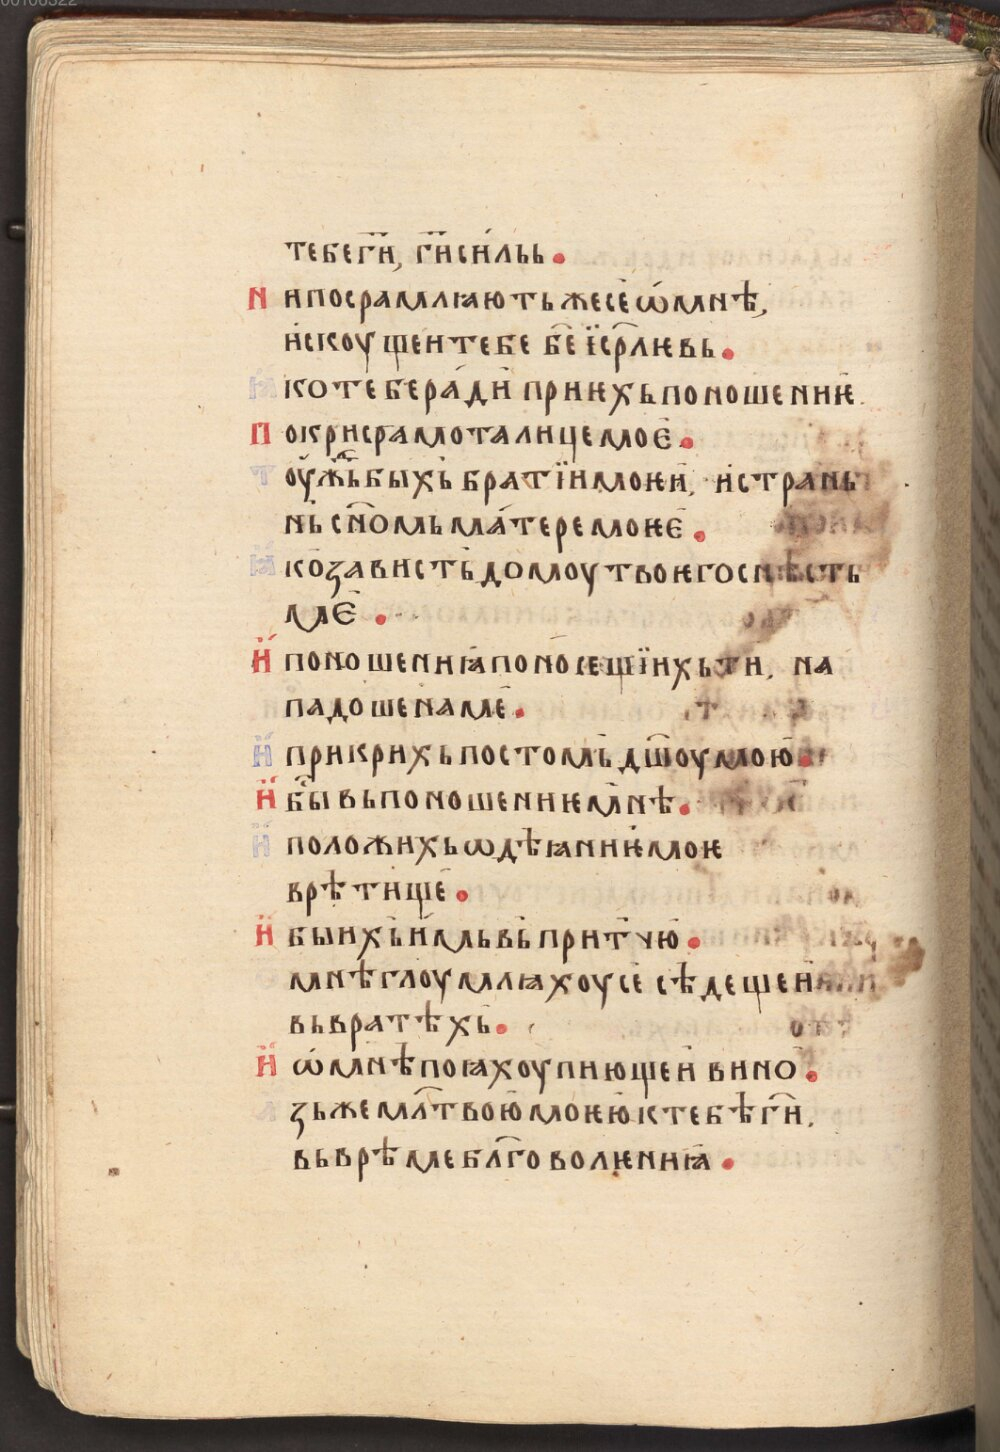 00106322
тебе г҃и, г҃и си́льь.
Н и посрамлꙗють же се ѡ́ мнѣ,
и҆скоущеи тебе б҃е і҆ср҃лѥвь.
Ꙗ ко тебе ра́ди приѥхь поношениѥ
П окри срамота лице моѥ.
Т оу́ждь быхь братїи моѥи, и҆ стра́нь
нь с҃номь ма́тере моѥѥ.
Ꙗ ко завистъ домоу твоѥго снѣсть
ме.
И поношениꙗ поносещїихь ти, на
падоше на ме.
И прикрихь постомь д҃шоу мою.
И бы́ вь поношениѥ мнѣ.
И положихь ѡдѣꙗниѥ моѥ
врѣтище.
И быхь и҆мь вь притчю.
мнѣ глоумлꙗхоу се сѣдещеи
вь вратѣхь.
И ѡ́ мнѣ поꙗхоу пиющеи вино.
зь же мл҃твою моѥю к тебѣ г҃и,
вь врѣме бл҃говолѥниꙗ.